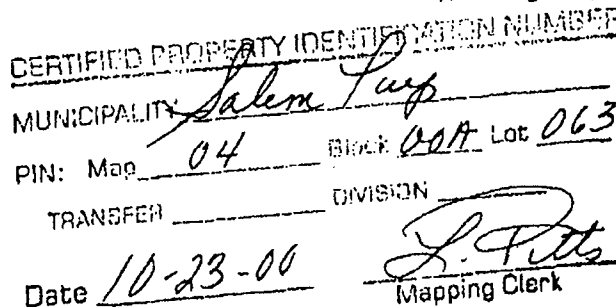 CERTIFIED PROPERTY IDENTIFICATION NUMBER
MUNICIPALITY Salem Twp
PIN: Map 04 Block 00A Lot 063
TRANSFER DIVISION
Date 10-23-00 L. Pitts
Mapping Clerk